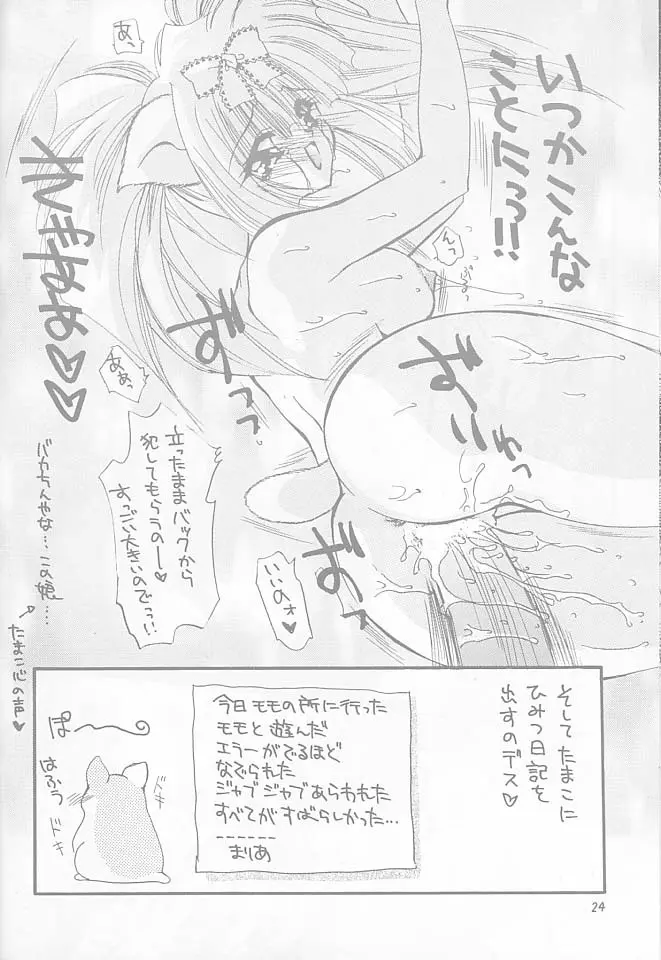 いつかこんな
ことにっっ!!
あっ
んっ
ぷるっ
あぁっ
立ったままバックから
犯してもらうのー♥
すっごい大きいのでっ!!
いいのォ♥
バカちんやな…この娘……
たまこ心の声♥
そしてたまこに
ひみつ日記を
出すのデス♥
今日モモの所に行った
モモと遊んだ
エラーがでるほど
なでられた
ジャブジャブあらわれた
すべてがすばらしかった…
------
まりあ
ぽ～～
はふぅ
ドキ
ドキ
24